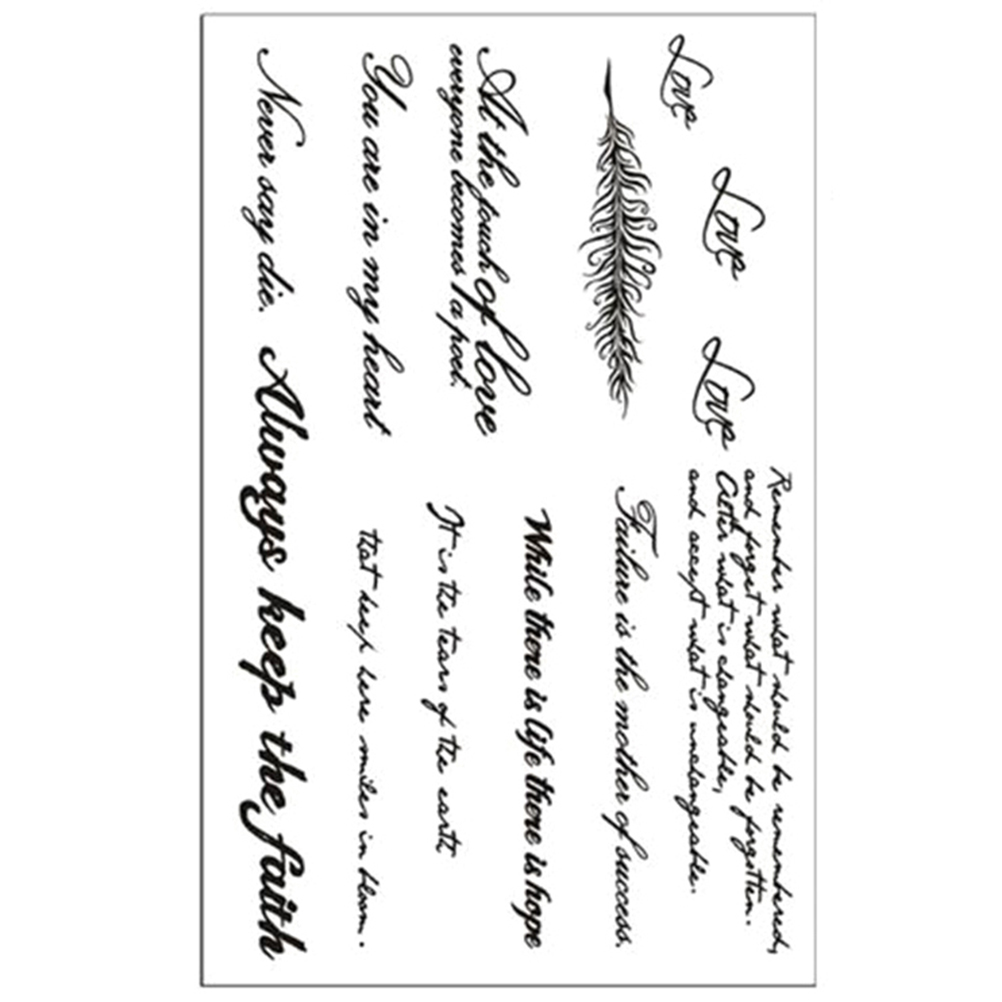 Love
Love
Love
Remember what should be remembered,
and forget what should be forgotten.
Alter what is changeable,
and accept what is unchangeable.
Failure is the mother of success.
At the touch of love
everyone becomes a poet.
While there is life there is hope
You are in my heart
It is the tears of the earth
that keep here smiles in bloom.
Never say die.
Always keep the faith